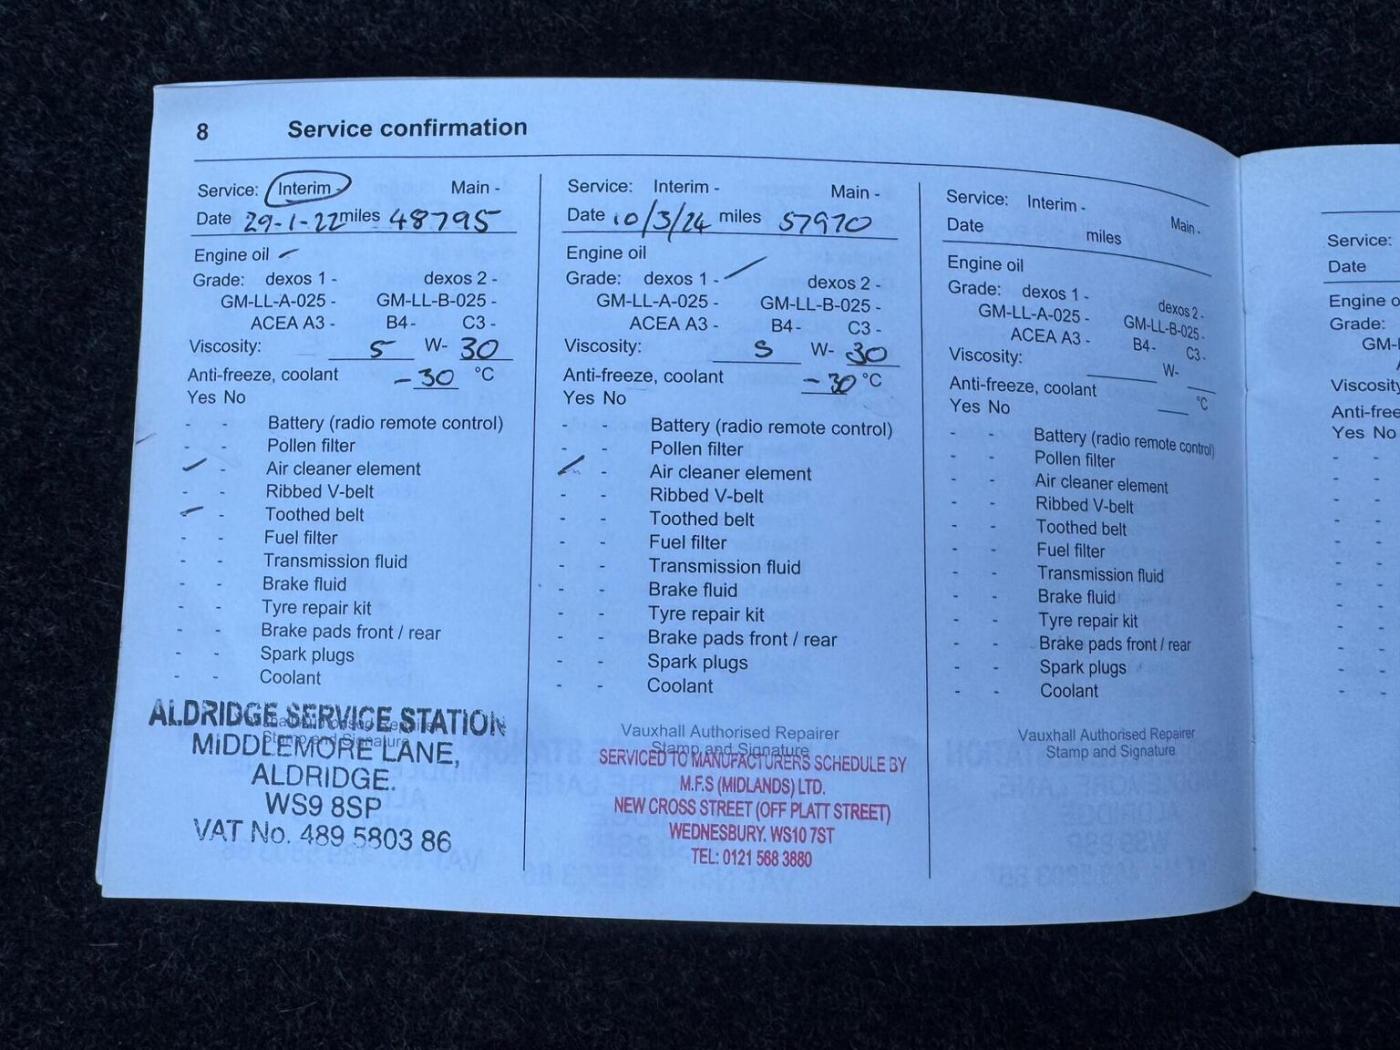 8 Service confirmation
Service: Interim - Main -
Date 29-1-22 miles 48795
Engine oil
Grade: dexos 1 - dexos 2 -
GM-LL-A-025 - GM-LL-B-025 -
ACEA A3 - B4- C3 -
Viscosity: 5 W- 30
Anti-freeze, coolant -30 °C
Yes No
- - Battery (radio remote control)
- - Pollen filter
- - Air cleaner element
- - Ribbed V-belt
- - Toothed belt
- - Fuel filter
- - Transmission fluid
- - Brake fluid
- - Tyre repair kit
- - Brake pads front / rear
- - Spark plugs
- - Coolant
Stamp and Signature
ALDRIDGE SERVICE STATION
MIDDLEMORE LANE,
ALDRIDGE.
WS9 8SP
VAT No. 489 5803 86
Service: Interim - Main -
Date 10/3/24 miles 57970
Engine oil
Grade: dexos 1 - dexos 2 -
GM-LL-A-025 - GM-LL-B-025 -
ACEA A3 - B4- C3 -
Viscosity: 5 W- 30
Anti-freeze, coolant -30 °C
Yes No
- - Battery (radio remote control)
- - Pollen filter
- - Air cleaner element
- - Ribbed V-belt
- - Toothed belt
- - Fuel filter
- - Transmission fluid
- - Brake fluid
- - Tyre repair kit
- - Brake pads front / rear
- - Spark plugs
- - Coolant
Vauxhall Authorised Repairer
Stamp and Signature
SERVICED TO MANUFACTURERS SCHEDULE BY
M.F.S (MIDLANDS) LTD.
NEW CROSS STREET (OFF PLATT STREET)
WEDNESBURY. WS10 7ST
TEL: 0121 568 3880
Service: Interim - Main -
Date miles
Engine oil
Grade: dexos 1 - dexos 2 -
GM-LL-A-025 - GM-LL-B-025 -
ACEA A3 - B4- C3 -
Viscosity: W-
Anti-freeze, coolant °C
Yes No
- - Battery (radio remote control)
- - Pollen filter
- - Air cleaner element
- - Ribbed V-belt
- - Toothed belt
- - Fuel filter
- - Transmission fluid
- - Brake fluid
- - Tyre repair kit
- - Brake pads front / rear
- - Spark plugs
- - Coolant
Vauxhall Authorised Repairer
Stamp and Signature
Service:
Date
Engine o
Grade:
GM-L
Viscosity
Anti-free
Yes No